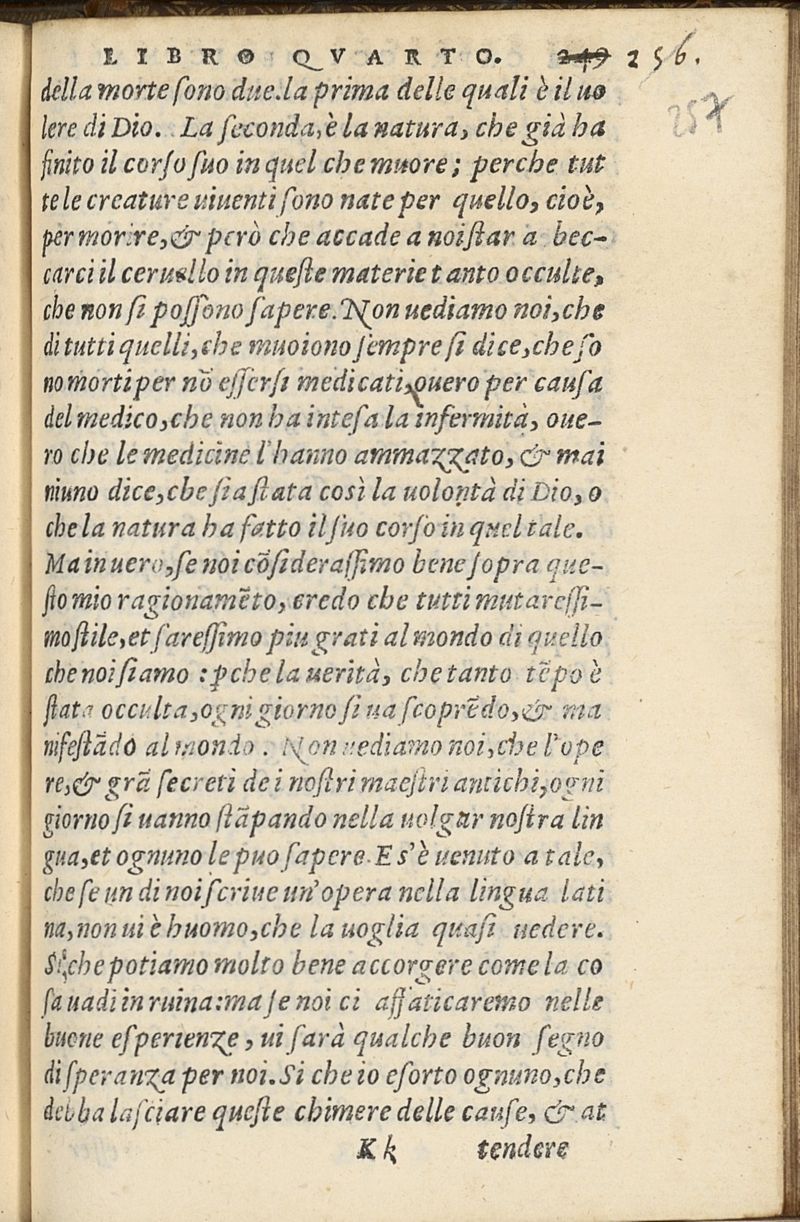 LIBRO QVARTO. 249 256.
257
della morte ſono due. la prima delle quali è il uo
lere di Dio. La ſeconda, è la natura, che già ha
finito il corſo ſuo in quel che muore; perche tut
te le creature uiuenti ſono nate per quello, cioè,
per morire, & però che accade a noi ſtar a bec-
carci il ceruello in queſte materie tanto occulte,
che non ſi poſſono ſapere. Non uediamo noi, che
di tutti quelli, che muoiono ſempre ſi dice, che ſo
no morti per nō eſſerſi medicati, ouero per cauſa
del medico, che non ha inteſa la infermità, oue-
ro che le medicine l'hanno ammazzato, & mai
niuno dice, che ſia ſtata così la uolontà di Dio, o
che la natura ha fatto il ſuo corſo in quel tale.
Ma in uero, ſe noi cōſideraſſimo bene ſopra que-
ſto mio ragionamēto, credo che tutti mutareſſi-
mo ſtile, et ſareſſimo piu grati al mondo di quello
che noi ſiamo : ꝑche la uerità, che tanto tēpo è
ſtata occulta, ogni giorno ſi ua ſcoprēdo, & ma
nifeſtādo al mondo. Non uediamo noi, che l'ope
re, & grā ſecreti de i noſtri maeſtri antichi, ogni
giorno ſi uanno ſtāpando nella uolgar noſtra lin
gua, et ognuno le puo ſapere. E s'è uenuto a tale,
che ſe un di noi ſcriue un'opera nella lingua lati
na, non ui è huomo, che la uoglia quaſi uedere.
Si che potiamo molto bene accorgere come la co
ſa uadi in ruina: ma ſe noi ci affaticaremo nelle
buone eſperienze, ui ſarà qualche buon ſegno
di ſperanza per noi. Si che io eſorto ognuno, che
debba laſciare queſte chimere delle cauſe, & at
Kk tendere